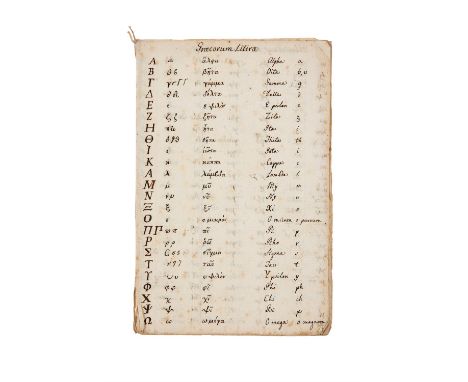 Græcorum Litera
Α α ἄλφα Alpha a
Β β ϐ βῆτα Vita b, v
Γ γ γάμμα Gamma g
Δ δ δέλτα Delta d
Ε ε ε ψιλὸν E psilon e
Ζ ζ ζῆτα Zita z
Η ἦτα Ita
Θ θ ϑ θῆτα Thita th
Ι ι ἰῶτα Iota i
Κ κ κάππα Cappa c
Λ λ λάμβδα Lambda l
Μ μ μῦ My m
Ν ν νῦ Ny n
Ξ ξ ξῖ Xi x
Ο ο ο μικρὸν O micron o parvum
Π Π π πῖ Pi p
Ρ ρ ῥῶ Rho r
Σ σ ς σίγμα Sigma s
Τ τ ταῦ Tau t
Υ υ υ ψιλὸν Y psilon y
Φ φ φῖ Phi ph
Χ χ χῖ Chi ch
Ψ ψ ψῖ Psi ps
Ω ω ω μέγα O mega o magnum